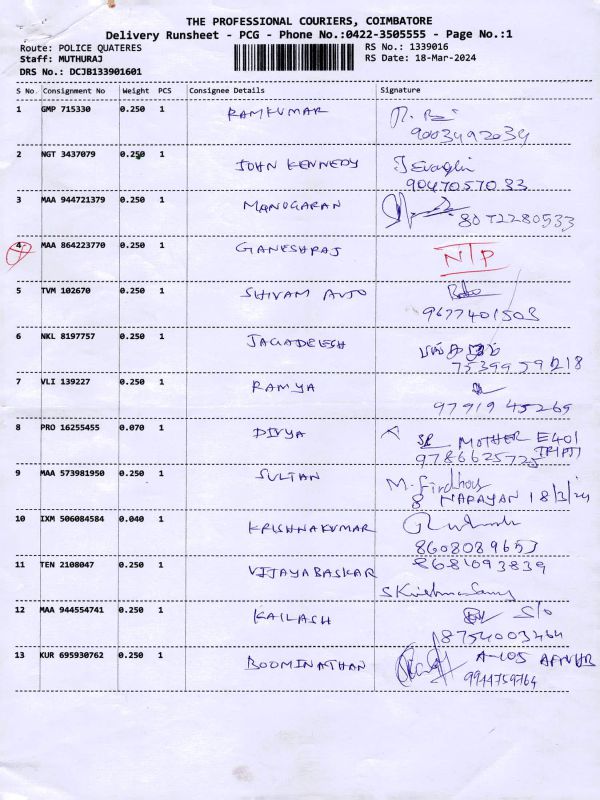 THE PROFESSIONAL COURIERS, COIMBATORE
Delivery Runsheet - PCG - Phone No.:0422-3505555 - Page No.:1
Route: POLICE QUATERES RS No.: 1339016
Staff: MUTHURAJ RS Date: 18-Mar-2024
DRS No.: DCJB133901601
S No. Consignment No Weight PCS Consignee Details Signature
1 GMP 715330 0.250 1 RAMKUMAR
9003492034
2 NGT 3437079 0.250 1 JOHN KENNEDY
9047057033
3 MAA 944721379 0.250 1 MANOGARAN 8072280533
4 MAA 864223770 0.250 1 GANESHRAJ NTP
5 TVM 102670 0.250 1 SHIVAM AUTO
9677401503
6 NKL 8197757 0.250 1 JAGADEESH
7539959218
7 VLI 139227 0.250 1 RAMYA
9791945269
8 PRO 16255455 0.070 1 DIVYA MOTHER E401
9786625725
9 MAA 573981950 0.250 1 SULTAN M. Firdhous
8 NARAYAN 18/3/24
10 IXM 506084584 0.040 1 KRISHNAKUMAR
8608089653
11 TEN 2108047 0.250 1 VIJAYABASKAR 8681093839
S Krishnasamy
12 MAA 944554741 0.250 1 KAILASH S/o
8754003464
13 KUR 695930762 0.250 1 BOOMINATHAN A-105
9944759764